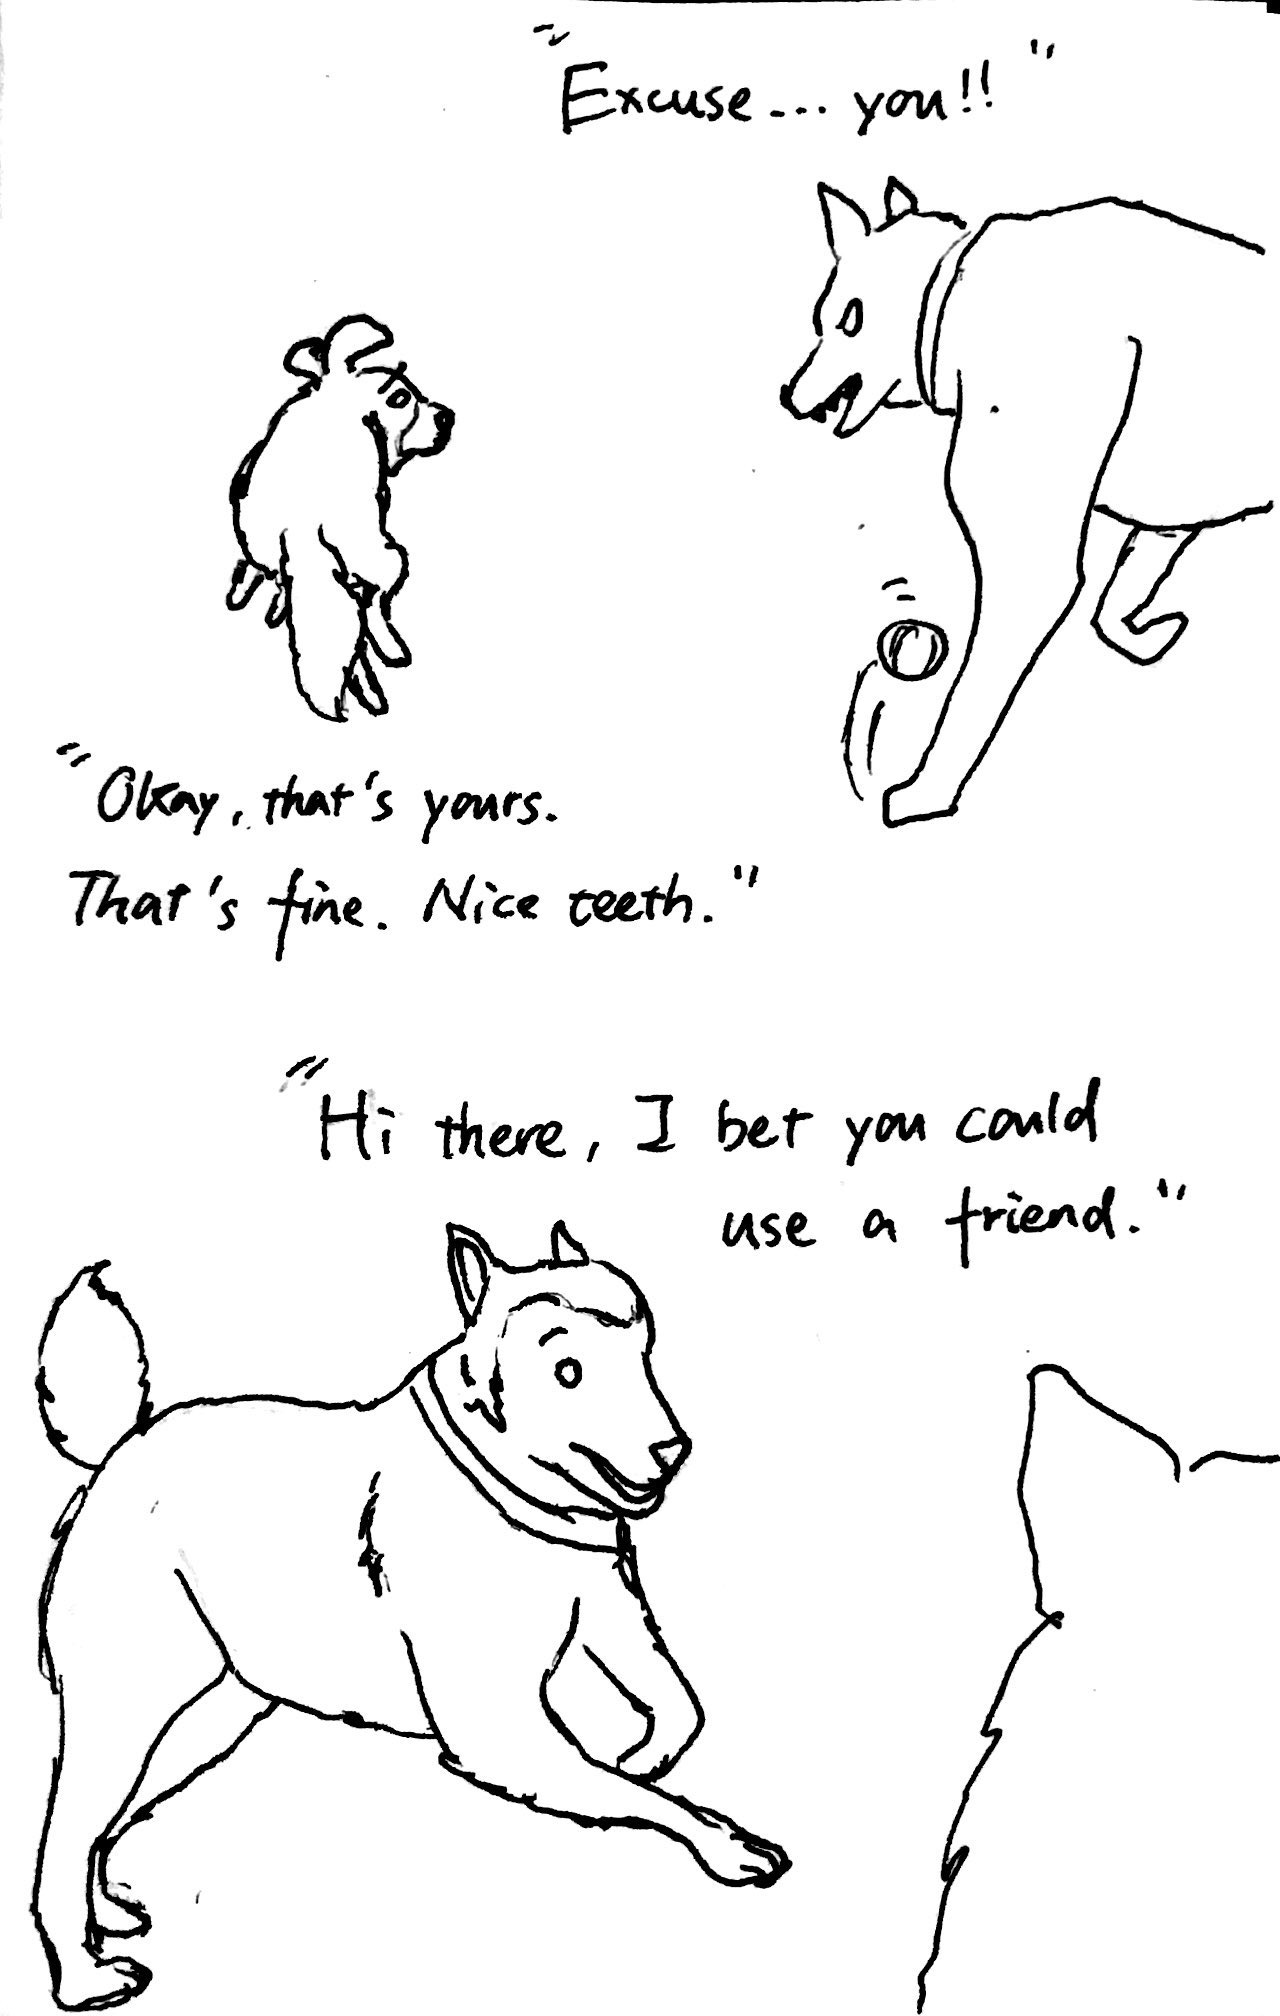 "Excuse... you!!"
"Okay, that's yours.
That's fine. Nice teeth."
"Hi there, I bet you could
use a friend."